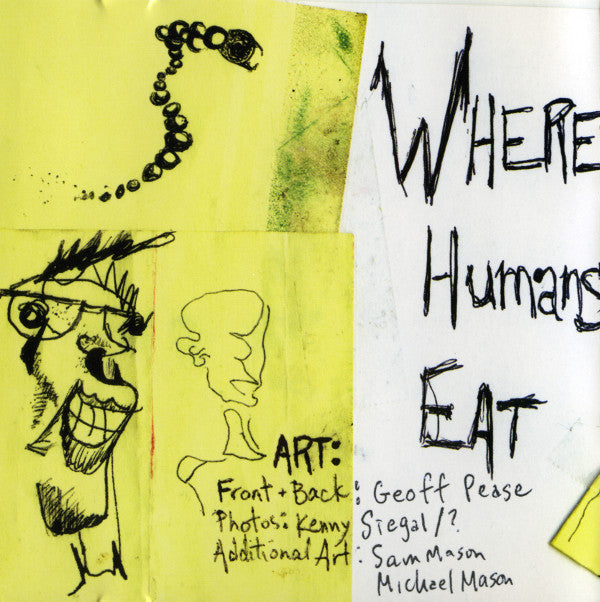 WHERE
Humans
EAT
ART:
Front + Back: Geoff Pease
Photos: Kenny Siegal/?
Additional Art: Sam Mason
Michael Mason